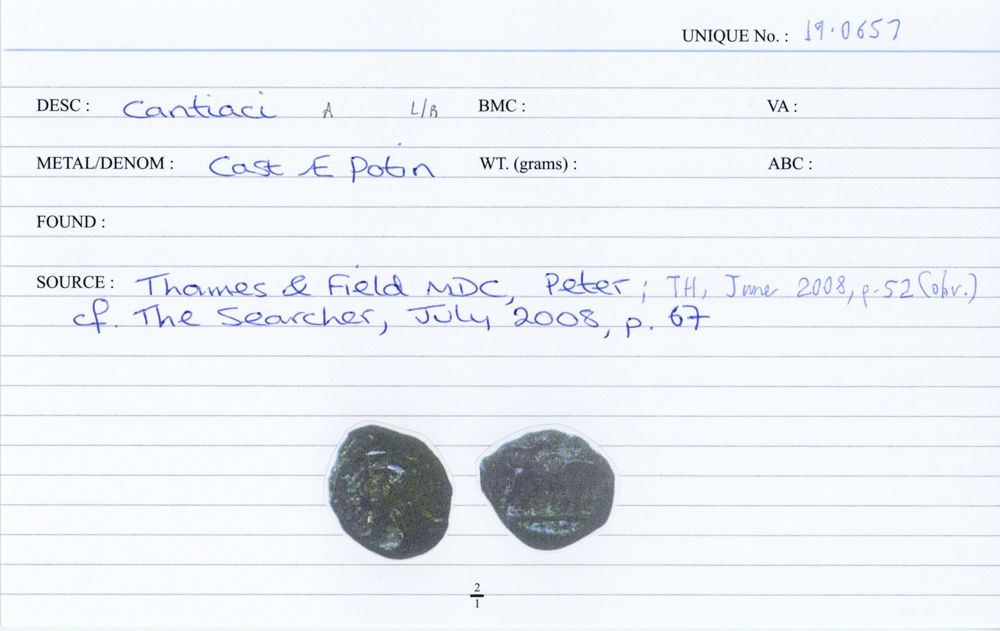 UNIQUE No. : 19.0657
DESC : Cantiaci A L/R BMC : VA :
METAL/DENOM : Cast Æ Potin WT. (grams) : ABC :
FOUND :
SOURCE : Thames & Field MDC, Peter; TH, June 2008, p.52 (obv.)
cf. The Searcher, July 2008, p. 67
2
1